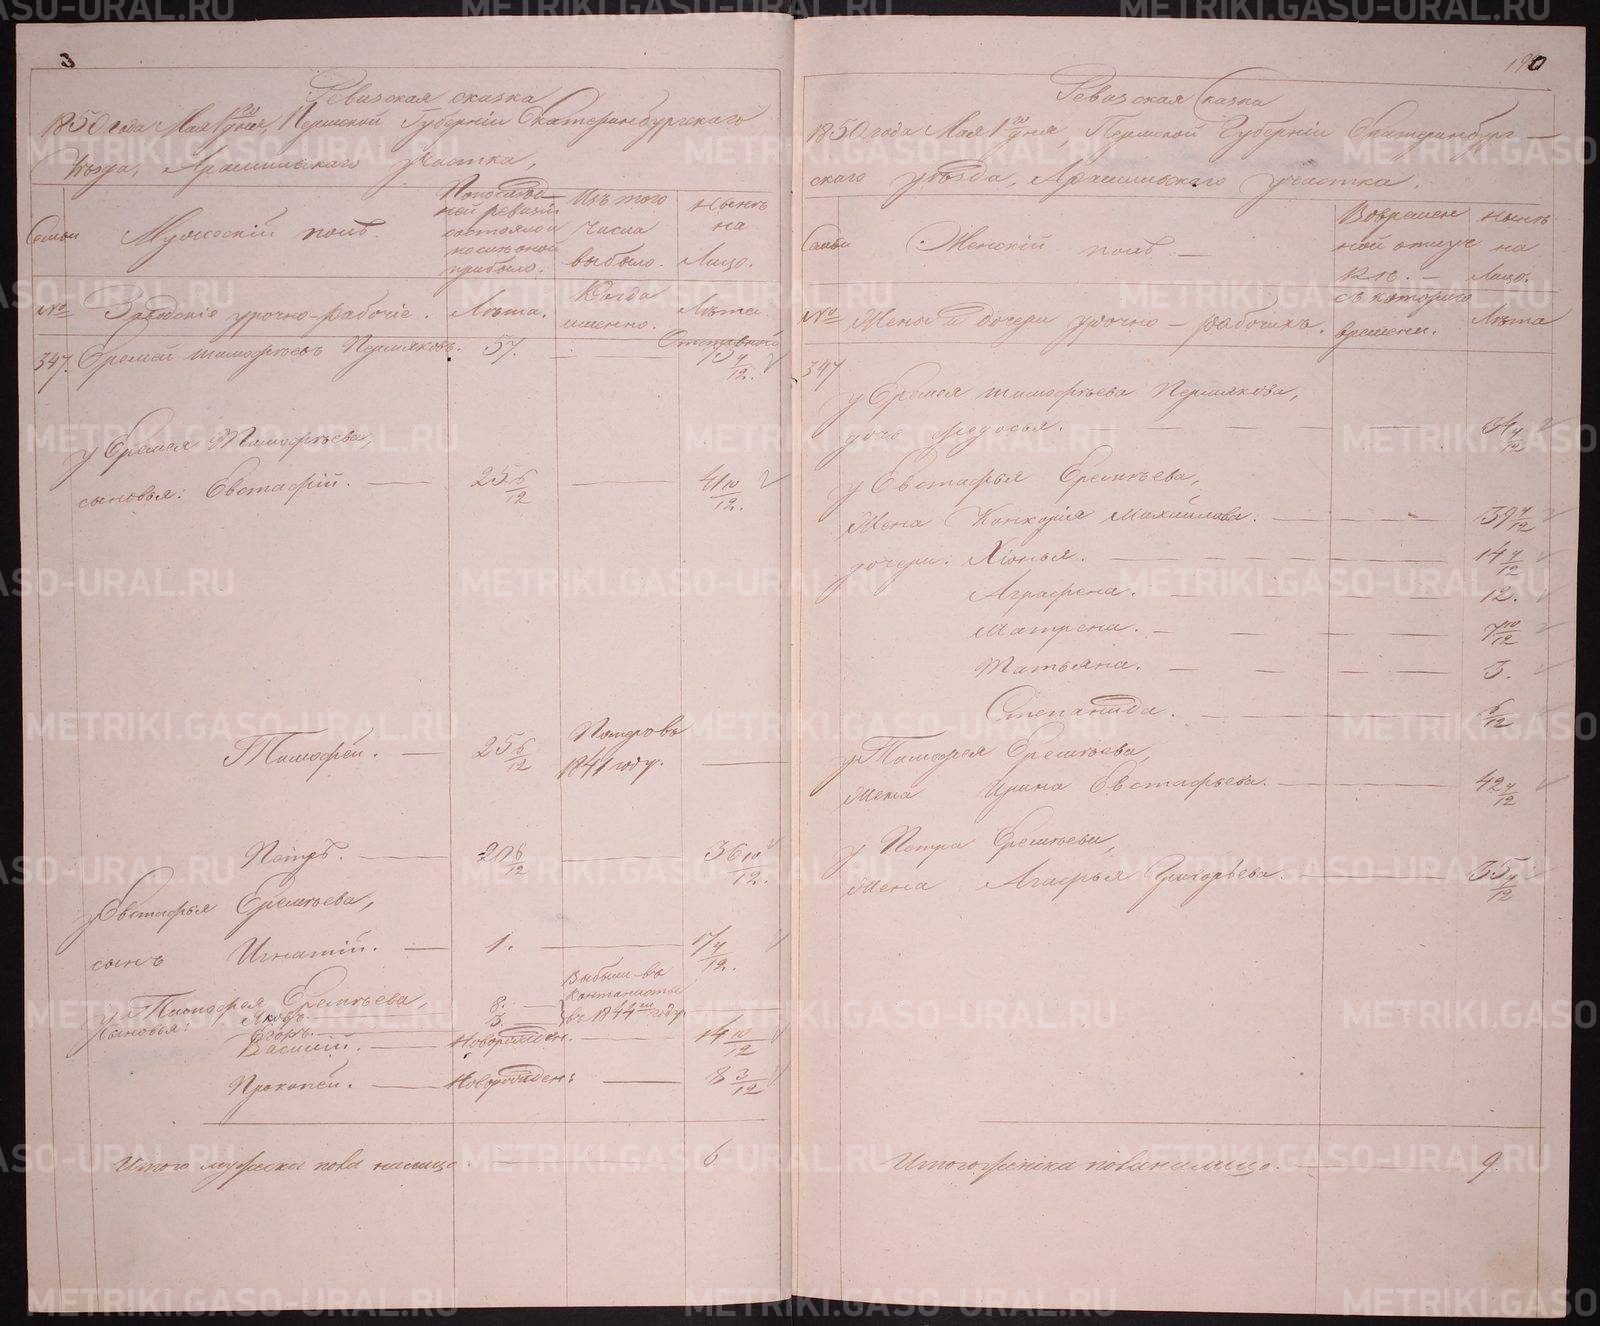 3
Ревизская сказка
1850 года Мая 1го дня, Пермской Губерніи Екатеринбургскаго
Уѣзда, Арамильскаго участка,
Семьи
Мужескій полъ
По последней ревизіи состояло и после оной прибыло.
Изъ того числа выбыло.
Нынѣ на лицо.
№
Заводскіе урочно-рабочіе.
Лѣта.
Когда именно.
Лѣта
347. Еремей Тимофѣевъ Пермяковъ. 57. — Отставной 73 4/12.
у Еремея Тимофѣева,
сыновья: Евстафій. — 25 6/12 — 41 10/12.
Тимофей. — 25 6/12
Померъ въ 1841 году. —
Петръ. — 20 6/12 — 36 10/12.
у Евстафья Еремѣева,
сынъ Игнатій. — 1. — 17 4/12.
у Тимофея Еремѣева,
сыновья: Яковъ. 8. —
Егоръ. — 5.
Выбыли въ кантонисты въ 1844м году
Василій. — Новорожден. — 14 10/12
Прокопей. — Новорожденъ — 8 3/12
Итого мужеска пола налицо — 6.
190
Ревизская Сказка
1850 года Мая 1го дня, Пермской Губерніи Екатеринбург—
скаго уѣзда, Арамильскаго участка.
Семьи
Женскій полъ —
Во временной отлучкѣ. —
Нынѣ на лицо.
№
Жены и дочери урочно-рабочихъ.
съ котораго времени.
Лѣта
347
у Еремея Тимофѣева Пермякова,
дочь Федосья. — 34 4/12
у Евстафья Еремѣева,
Жена Канкордія Михайлова. — 39 4/12
дочери: Хіонья. — 14 4/12
Аграфена. — 12.
Матрена. — 7 10/12
Татьяна. — 3.
Степанида. — 6/12
у Тимофея Еремѣева,
Жена Ирина Евстафьева. — 42 4/12
у Петра Еремѣева,
Жена Агафья Григорьева. — 35 4/12
Итого женска пола налицо. — 9.
METRIKI.GASO-URAL.RU